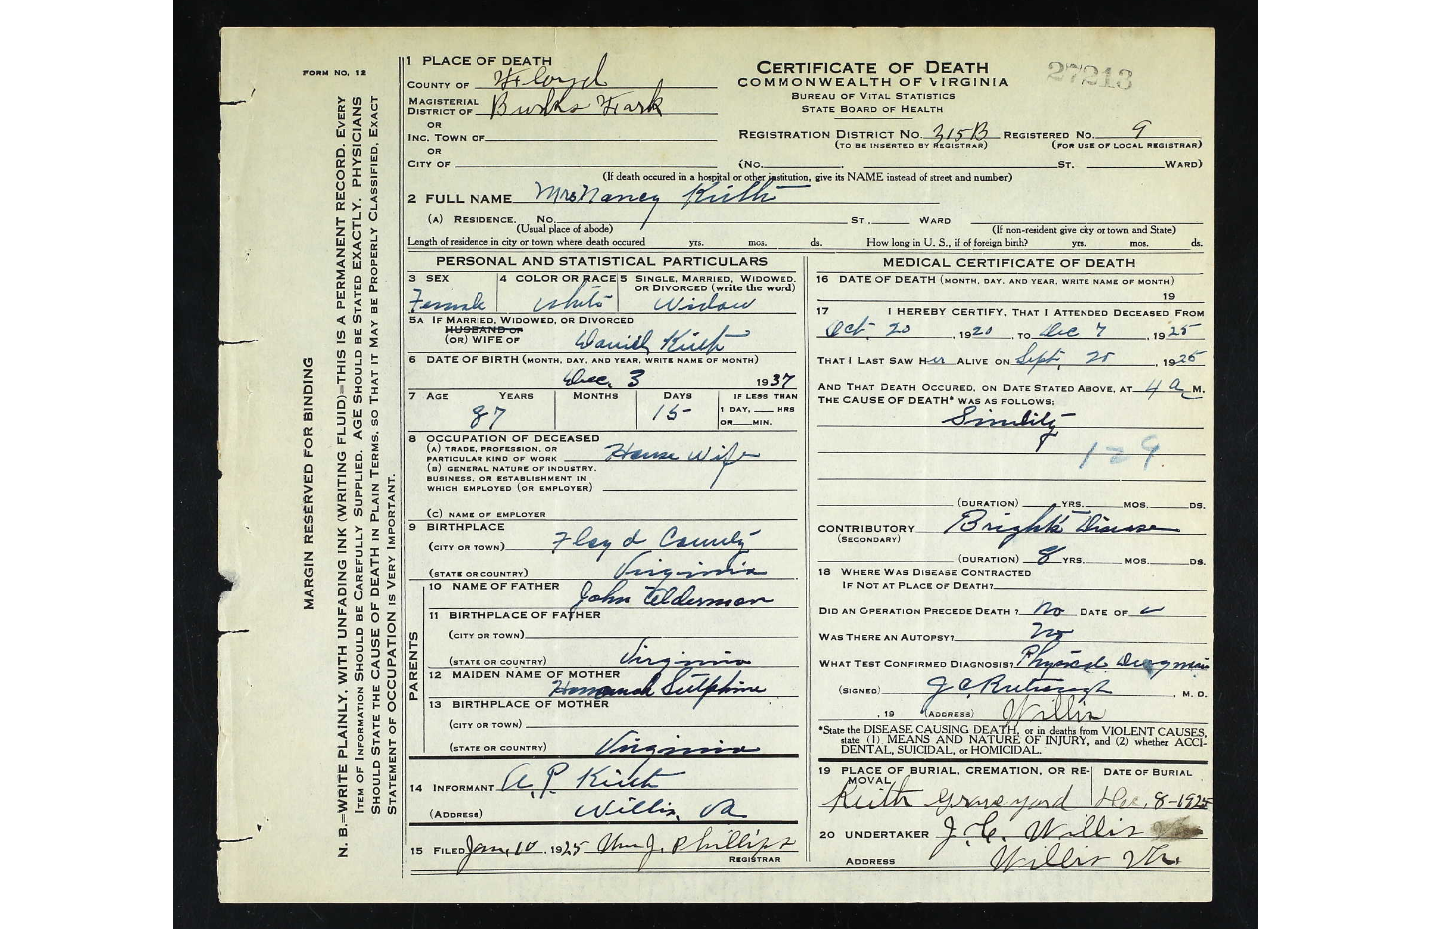 FORM NO. 12
MARGIN RESERVED FOR BINDING
N. B.=WRITE PLAINLY, WITH UNFADING INK (WRITING FLUID)=THIS IS A PERMANENT RECORD. EVERY
ITEM OF INFORMATION SHOULD BE CAREFULLY SUPPLIED. AGE SHOULD BE STATED EXACTLY. PHYSICIANS
SHOULD STATE THE CAUSE OF DEATH IN PLAIN TERMS, SO THAT IT MAY BE PROPERLY CLASSIFIED. EXACT
STATEMENT OF OCCUPATION IS VERY IMPORTANT.
1 PLACE OF DEATH
COUNTY OF Floyd
MAGISTERIAL
DISTRICT OF Burks Fork
OR
INC. TOWN OF
OR
CITY OF
CERTIFICATE OF DEATH
COMMONWEALTH OF VIRGINIA
BUREAU OF VITAL STATISTICS
STATE BOARD OF HEALTH
27913
REGISTRATION DISTRICT NO. 315B REGISTERED NO. 9
(TO BE INSERTED BY REGISTRAR) (FOR USE OF LOCAL REGISTRAR)
(NO. ST. WARD)
(If death occured in a hospital or other institution, give its NAME instead of street and number)
2 FULL NAME Mrs Nancy Keith
(A) RESIDENCE. NO. ST., WARD
(Usual place of abode) (If non-resident give city or town and State)
Length of residence in city or town where death occured yrs. mos. ds. How long in U. S., if of foreign birth? yrs. mos. ds.
PERSONAL AND STATISTICAL PARTICULARS
3 SEX
Female
4 COLOR OR RACE
White
5 SINGLE, MARRIED, WIDOWED,
OR DIVORCED (write the word)
Widow
5A IF MARRIED, WIDOWED, OR DIVORCED
HUSBAND OF
(OR) WIFE OF Daniel Keith
6 DATE OF BIRTH (MONTH, DAY, AND YEAR, WRITE NAME OF MONTH)
Dec. 3 1937
7 AGE YEARS MONTHS DAYS IF LESS THAN
87 15 1 DAY, HRS
OR MIN.
8 OCCUPATION OF DECEASED
(A) TRADE, PROFESSION, OR
PARTICULAR KIND OF WORK House Wife
(B) GENERAL NATURE OF INDUSTRY,
BUSINESS, OR ESTABLISHMENT IN
WHICH EMPLOYED (OR EMPLOYER)
(C) NAME OF EMPLOYER
9 BIRTHPLACE
(CITY OR TOWN) Floyd County
(STATE OR COUNTRY) Virginia
PARENTS
10 NAME OF FATHER
John
11 BIRTHPLACE OF FATHER
(CITY OR TOWN)
(STATE OR COUNTRY) Virginia
12 MAIDEN NAME OF MOTHER
Hannah Sutphine
13 BIRTHPLACE OF MOTHER
(CITY OR TOWN)
(STATE OR COUNTRY) Virginia
14 INFORMANT A. P. Keith
(ADDRESS) Willis, Va
15 FILED Jan, 10, 1925 Wm J. Phillips
REGISTRAR
MEDICAL CERTIFICATE OF DEATH
16 DATE OF DEATH (MONTH, DAY, AND YEAR, WRITE NAME OF MONTH)
19
17 I HEREBY CERTIFY, THAT I ATTENDED DECEASED FROM
Oct. 20, 1920, TO Dec 7, 1925
THAT I LAST SAW Her ALIVE ON Sept. 25, 1925
AND THAT DEATH OCCURED, ON DATE STATED ABOVE, AT 4 a M.
THE CAUSE OF DEATH* WAS AS FOLLOWS:
Sinility
129
(DURATION) YRS. MOS. DS.
CONTRIBUTORY Bright's Disease
(SECONDARY)
(DURATION) 8 YRS. MOS. DS.
18 WHERE WAS DISEASE CONTRACTED
IF NOT AT PLACE OF DEATH?
DID AN OPERATION PRECEDE DEATH? No DATE OF
WAS THERE AN AUTOPSY? No
WHAT TEST CONFIRMED DIAGNOSIS? Physical
(SIGNED) J C , M. D.
, 19 (ADDRESS) Willis
*State the DISEASE CAUSING DEATH, or in deaths from VIOLENT CAUSES,
state (1) MEANS AND NATURE OF INJURY, and (2) whether ACCI-
DENTAL, SUICIDAL, or HOMICIDAL.
19 PLACE OF BURIAL, CREMATION, OR RE-
MOVAL
Keith Graveyard
DATE OF BURIAL
Dec. 8-1925
20 UNDERTAKER J. C. Willis
ADDRESS Willis Va.